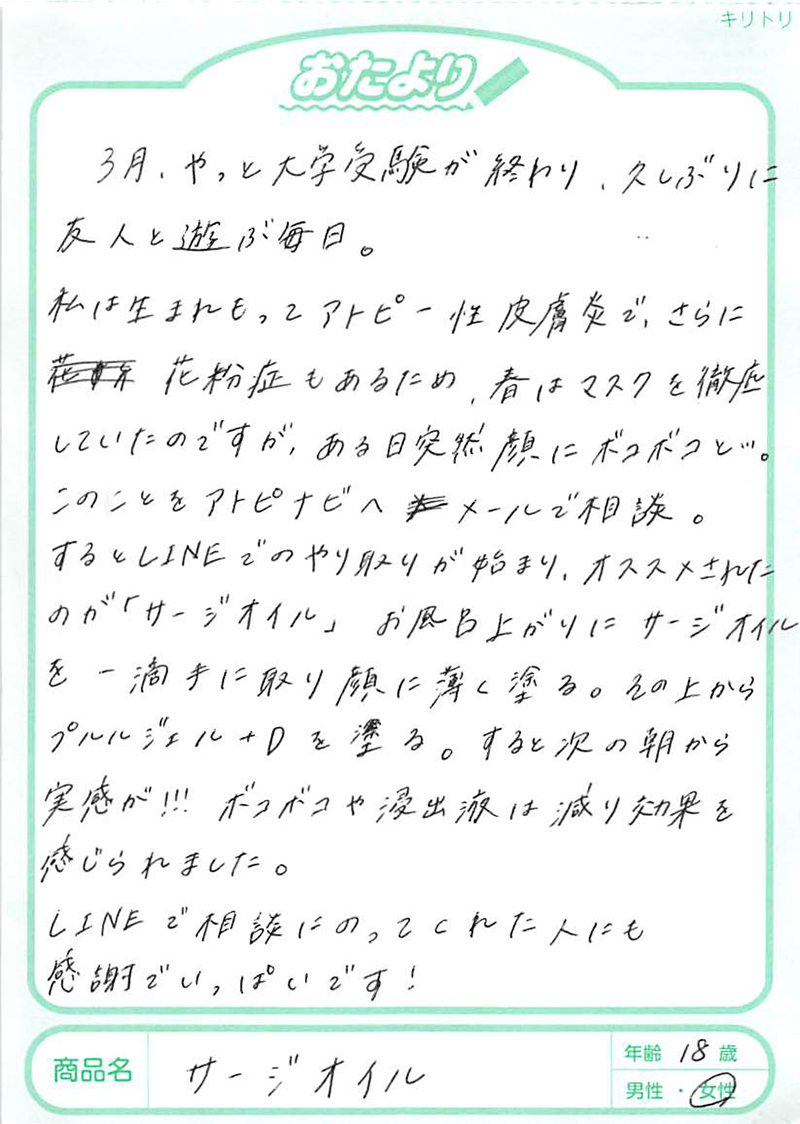 キリトリ
おたより
3月、やっと大学受験が終わり、久しぶりに
友人と遊ぶ毎日。
私は生まれもってアトピー性皮膚炎で、さらに
花粉症もあるため、春はマスクを徹底
していたのですが、ある日突然顔にボコボコと…。
このことをアトピナビへ メールで相談。
するとLINEでのやり取りが始まり、オススメされた
のが「サージオイル」 お風呂上がりに サージオイル
を一滴手に取り顔に薄く塗る。その上から
プルルジェル+Dを塗る。すると次の朝から
実感が!!! ボコボコや浸出液は減り効果を
感じられました。
LINEで相談にのってくれた人にも
感謝でいっぱいです!
商品名 サージオイル
年齢 18歳
男性・女性